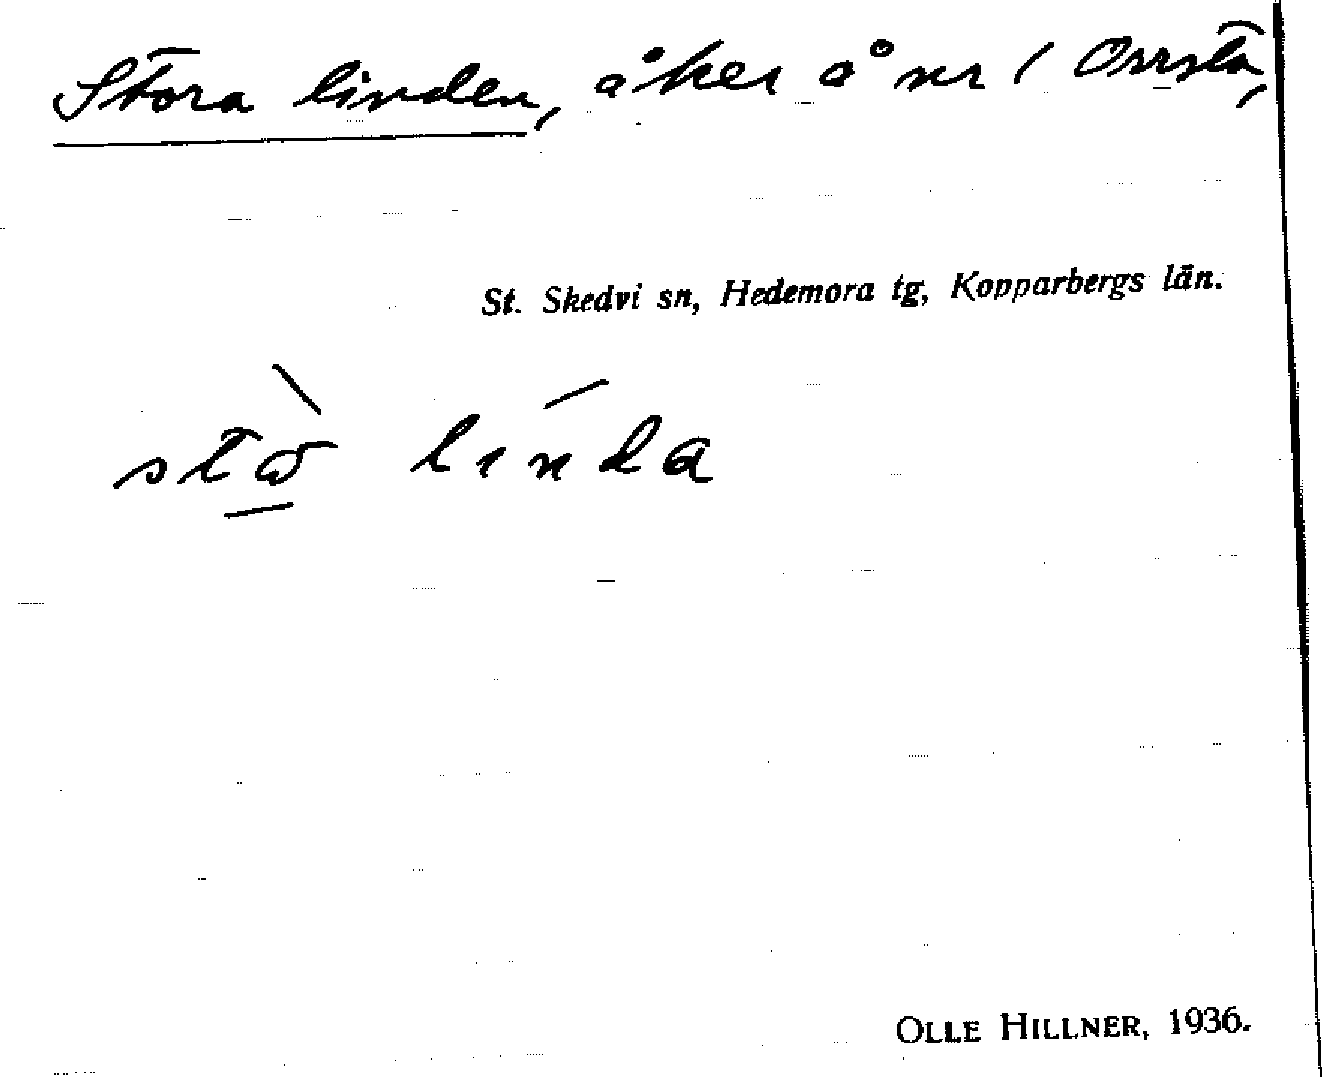 Stora linden, åker å nr 1 Orrsta,
St. Skedvi sn, Hedemora tg, Kopparbergs län.
linda
OLLE HILLNER, 1936.